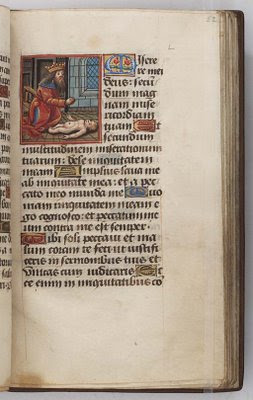 Misere
re mei
deus: secū
dum mag
nam mise
ricordiam
tuam Et
secundum
multitudinem miserationum
tuarum: dele iniquitatem
meam Amplius laua me
ab iniquitate mea: et a pec
cato meo munda me Quo
niam iniquitatem meam e
go cognosco: et peccatum me
um contra me est semper.
Tibi soli peccaui et ma
lum coram te feci ut iustifi
ceris in sermonibus tuis et
vincas cum iudicaris Ec
ce enim in iniquitatibus co